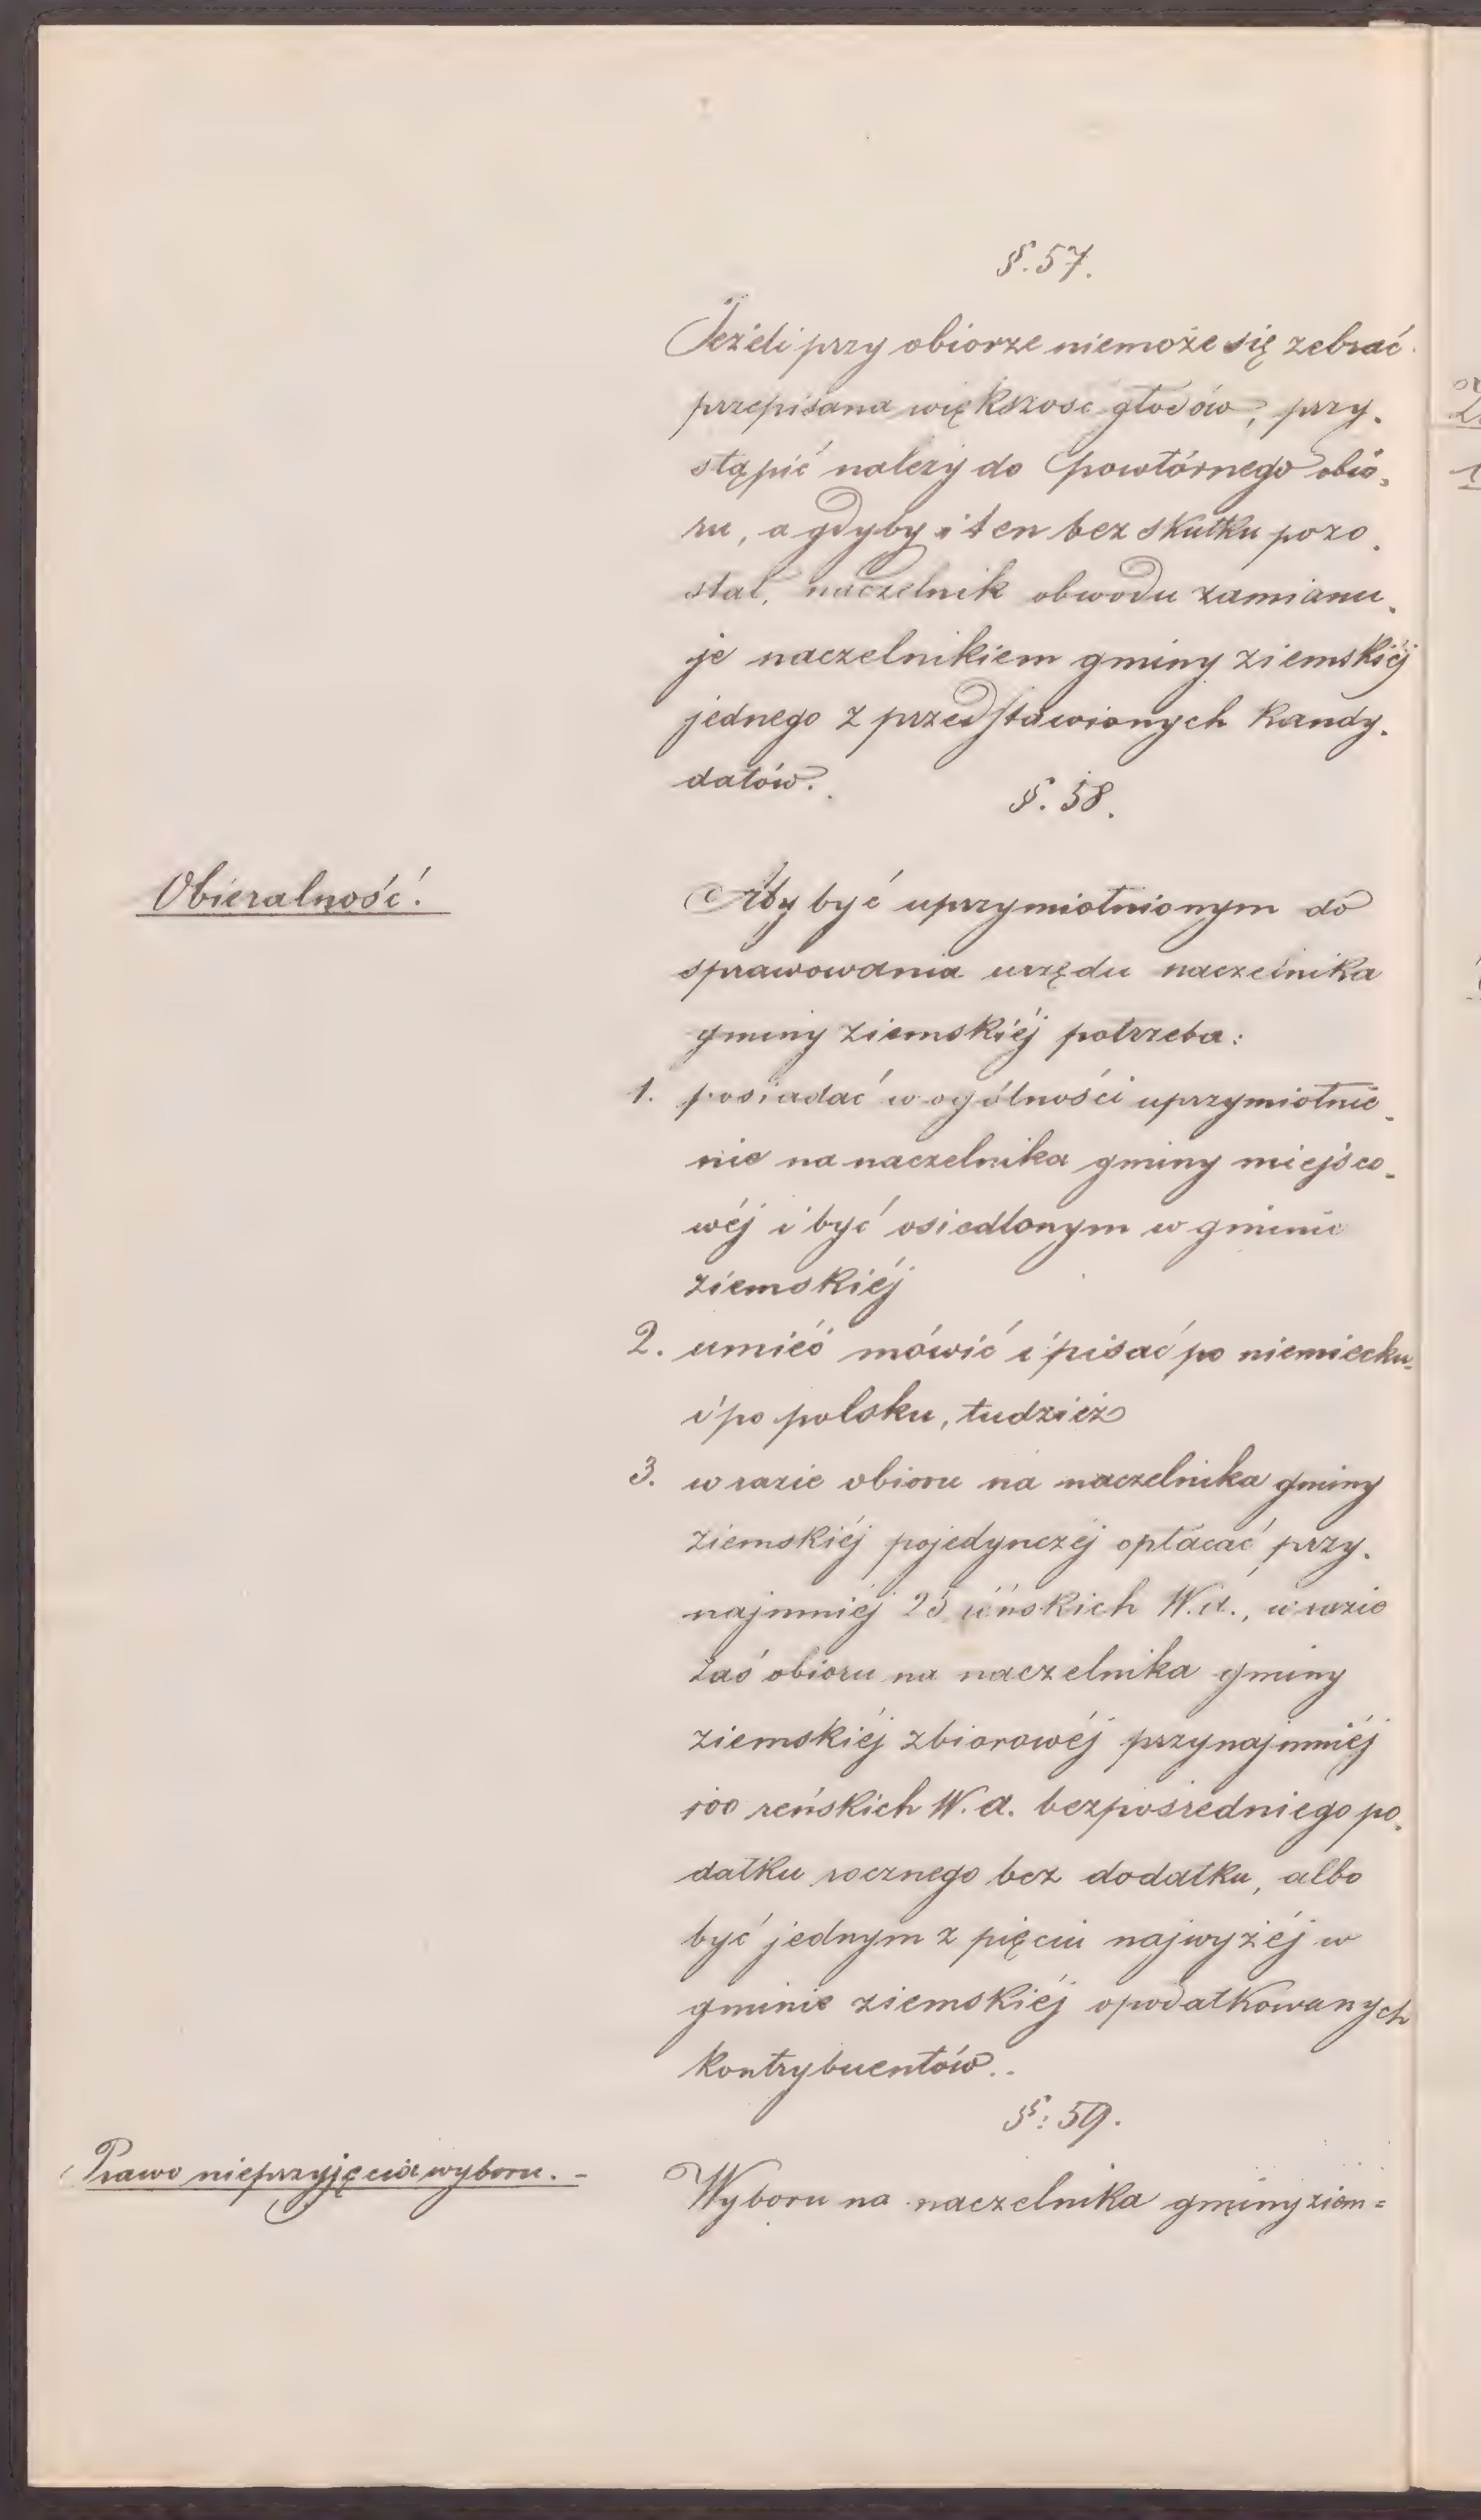 §. 57.
Jeżeli przy obiorze niemoże się zebrać
przepisana większość głosów, przy-
stąpić należy do powtórnego obio-
ru, a gdyby i ten bez skutku pozo-
stał, naczelnik obwodu zamianu-
je naczelnikiem gminy ziemskiéj
jednego z przedstawionych kandy-
datów.
§. 58.
Obieralność.
Aby być uprzymiotnionym do
sprawowania urzędu naczelnika
gminy ziemskiéj potrzeba:
1. posiadać w ogólności uprzymiotnie-
nie na naczelnika gminy miejsco-
wéj i być osiedlonym w gminie
ziemskiéj
2. umieć mówić i pisać po niemiecku
i po polsku, tudzież
3. w razie obioru na naczelnika gminy
ziemskiéj pojedynczéj opłacać przy-
najmniéj 25 reńskich W. a., w razie
zaś obioru na naczelnika gminy
ziemskiéj zbiorowéj przynajmniéj
100 reńskich W. a. bezpośredniego po-
datku rocznego bez dodatku, albo
być jednym z pięciu najwyżéj w
gminie ziemskiéj opodatkowanych
kontrybuentów.
§: 59.
Prawo nieprzyjęcia wyboru. -
Wyboru na naczelnika gminy ziem=